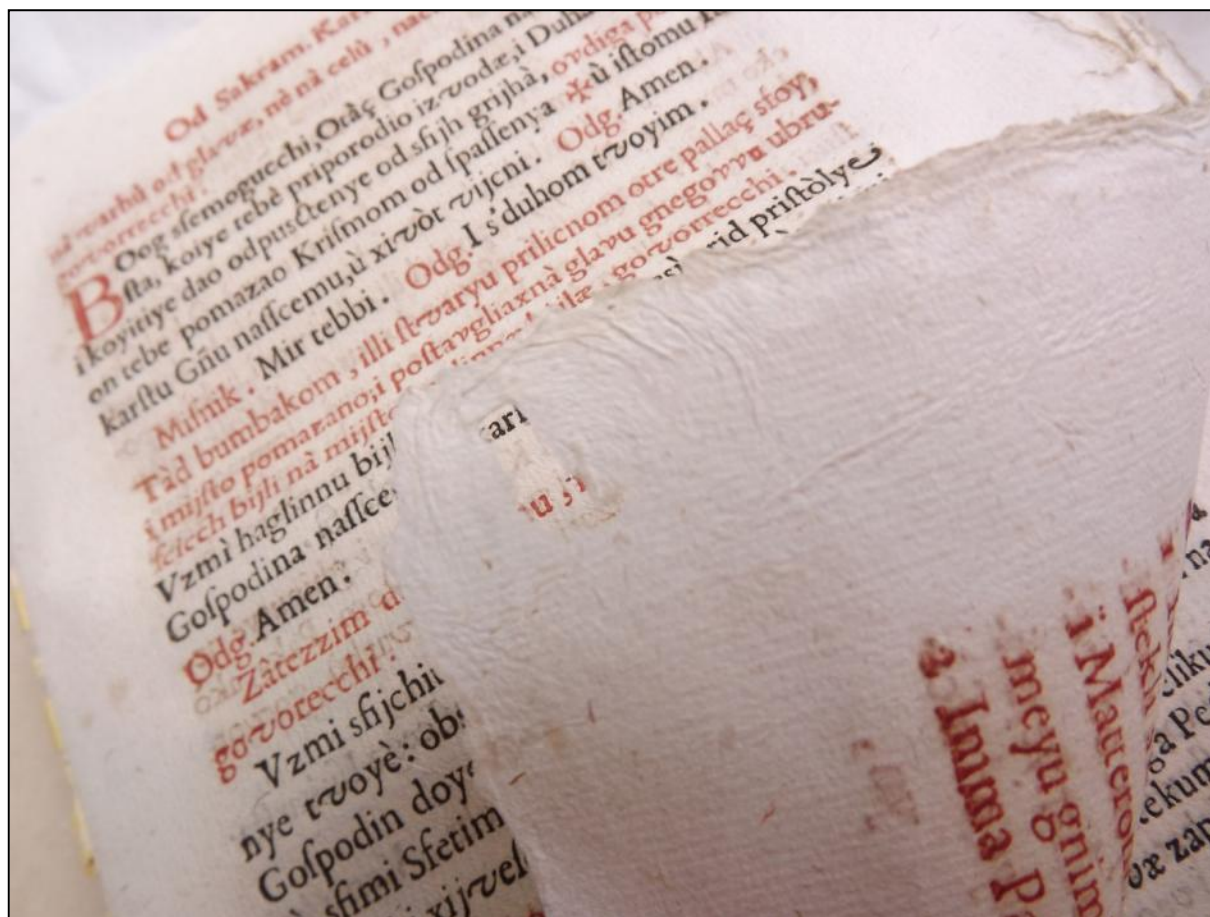 Od Sakram. Kar
nà varhù od glavæ, nè nà celù, nac
govorrecchi:
BOog sfemogucchi, Otàç Goſpodina na
ſta, koiye tebè priporodio iz vodæ, i Duha
i koyitiye dao odpusctenye od sfijh grijhà, ovdiga po
on tebe pomazao Kriſmom od ſpaſſenya ✠ ù iſtomu
Karſtu Gñu naſſcemu, ù xivòt vijcni. Odg. Amen.
Miſnik. Mir tebbi. Odg. I s' duhom tvoyim.
Tàd bumbakom, illi ſtvaryu prilicnom otre pallaç sfoy,
i mijſto pomazano; i poſtavgliaxnà glavu gnegovvu ubru-
felech bijli nà mijſto govorrecchi.
Vzmì haglinnu bijl rid priſtòlye
Goſpodina naſſce
Odg. Amen.
Zâtezzim d
govorecchi:
Vzmi sfijchiu
nye tvoyè: obs
Goſpodin doye
sfimi Sfetim
xijvel
ari
ſtek
i Mauero
meyu gnim
3 Imma P
eliku
ga Pe
ekum
væ zap